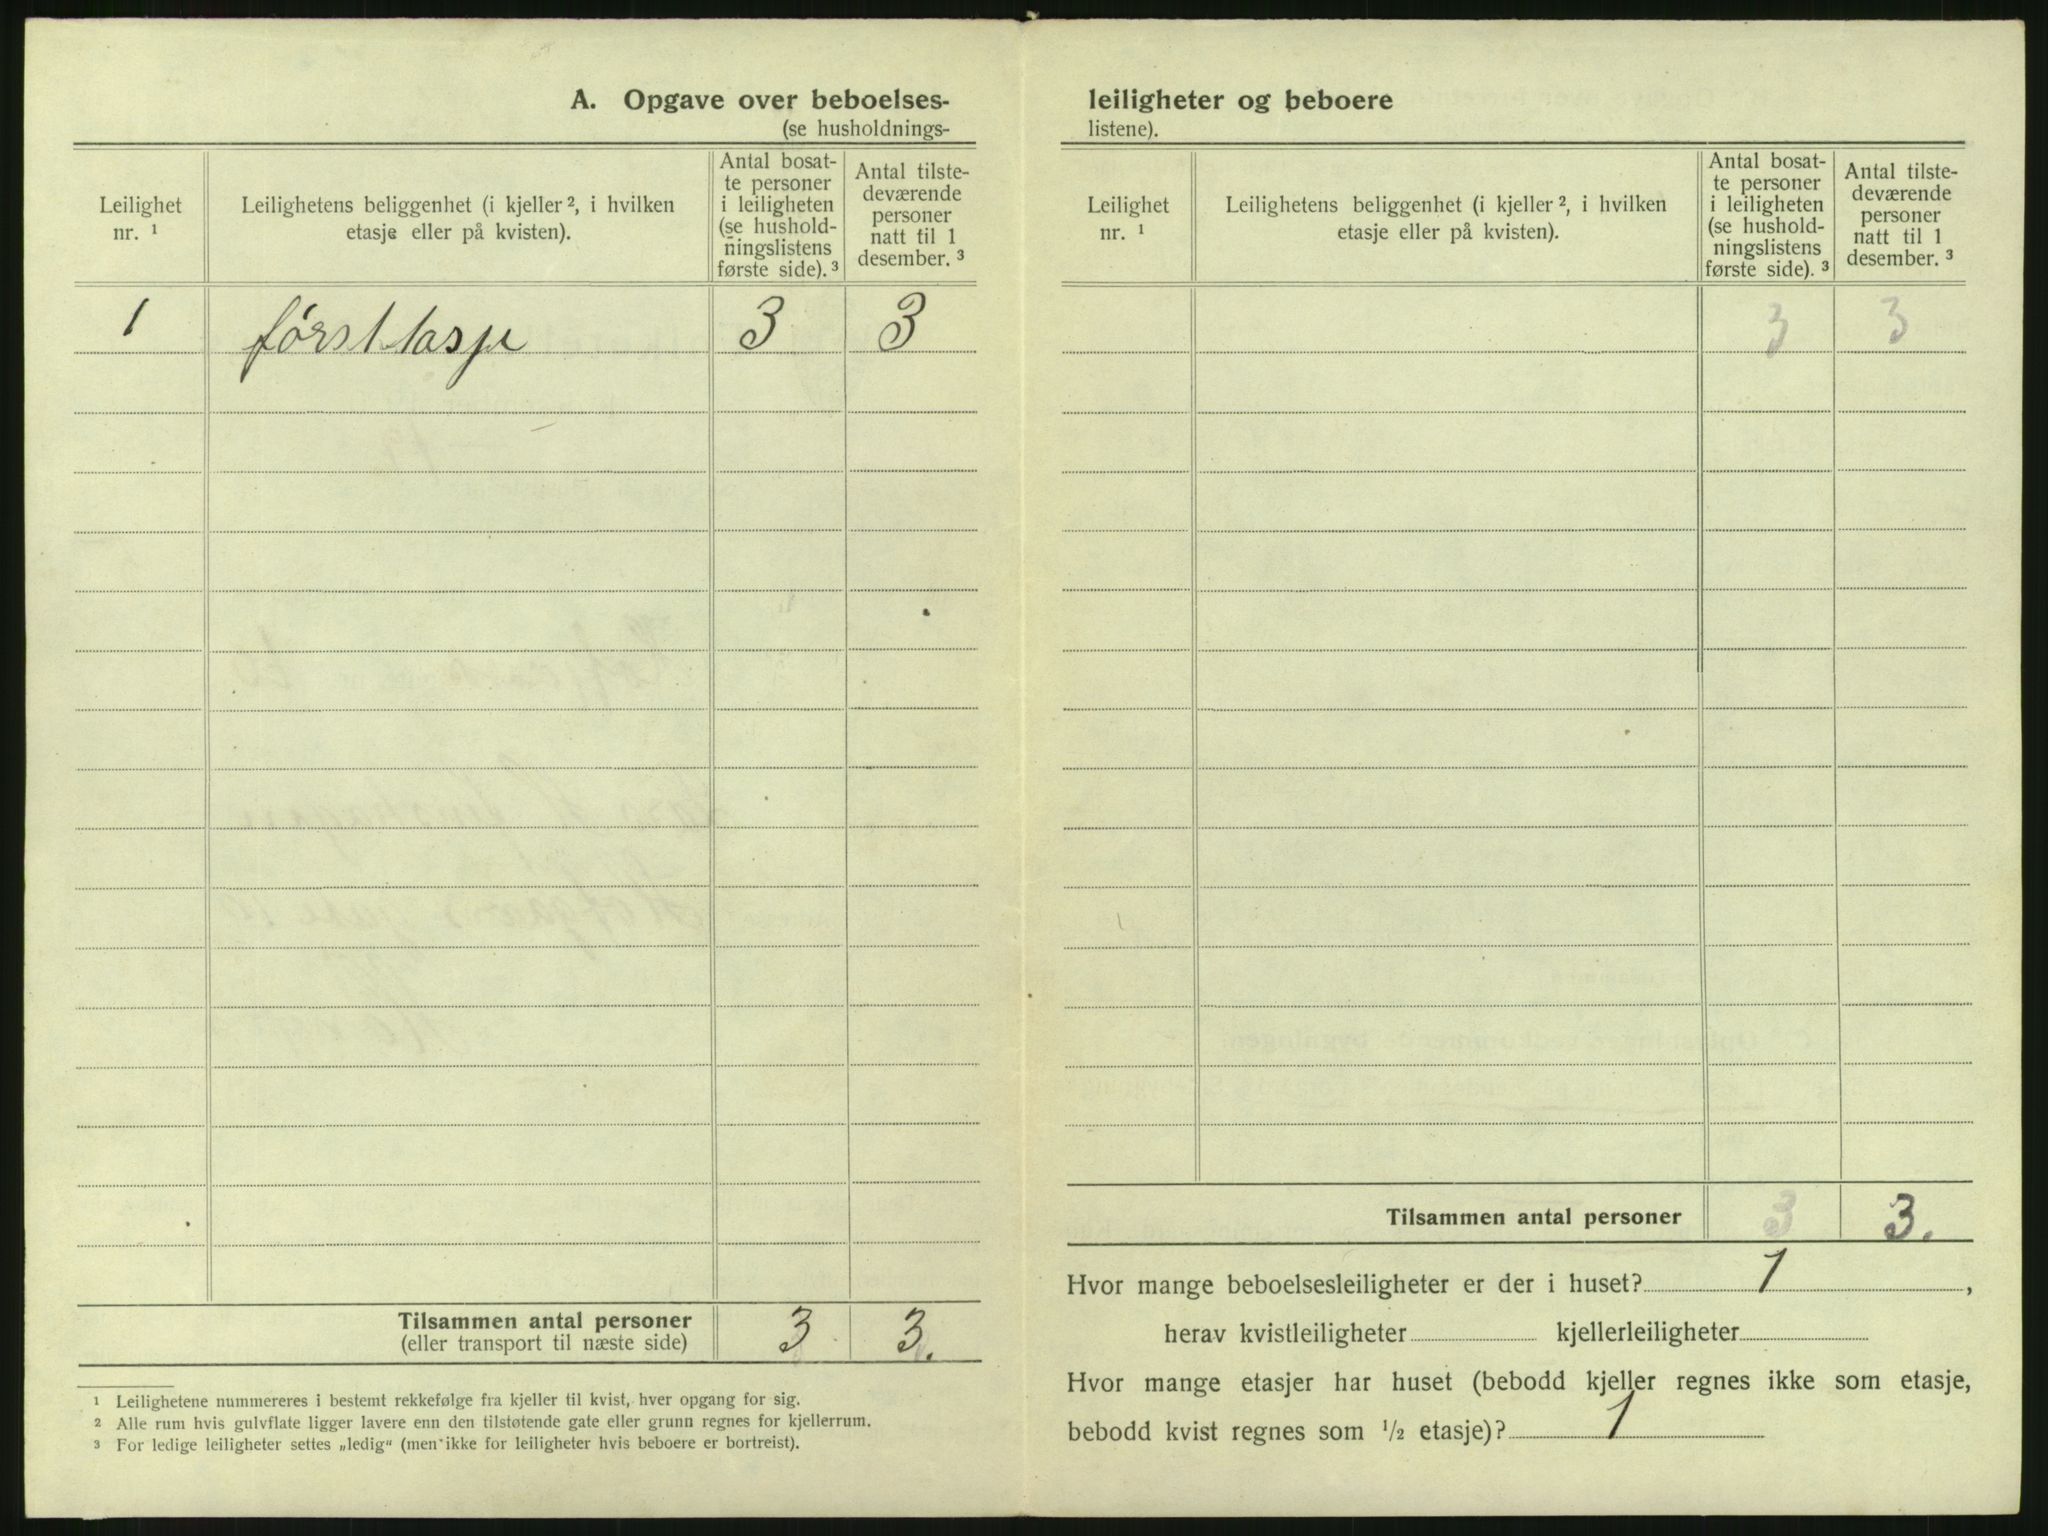 A. Opgave over beboelses-
(se husholdnings-
Leilighet
nr. ¹
Leilighetens beliggenhet (i kjeller ², i hvilken
etasje eller på kvisten).
Antal bosat-
te personer
i leiligheten
(se hushold-
ningslistens
første side). ³
Antal tilste-
deværende
personer
natt til 1
desember. ³
1 førsttasje 3 3
Tilsammen antal personer 3 3.
(eller transport til næste side)
¹ Leilighetene nummereres i bestemt rekkefølge fra kjeller til kvist, hver opgang for sig.
² Alle rum hvis gulvflate ligger lavere enn den tilstøtende gate eller grunn regnes for kjellerrum.
³ For ledige leiligheter settes „ledig“ (men ikke for leiligheter hvis beboere er bortreist).
leiligheter og beboere
listene).
Leilighet
nr. ¹
Leilighetens beliggenhet (i kjeller ², i hvilken
etasje eller på kvisten).
Antal bosat-
te personer
i leiligheten
(se hushold-
ningslistens
første side). ³
Antal tilste-
deværende
personer
natt til 1
desember. ³
3 3
Tilsammen antal personer 3 3.
Hvor mange beboelsesleiligheter er der i huset? 1 ,
herav kvistleiligheter kjellerleiligheter
Hvor mange etasjer har huset (bebodd kjeller regnes ikke som etasje,
bebodd kvist regnes som ½ etasje)? 1